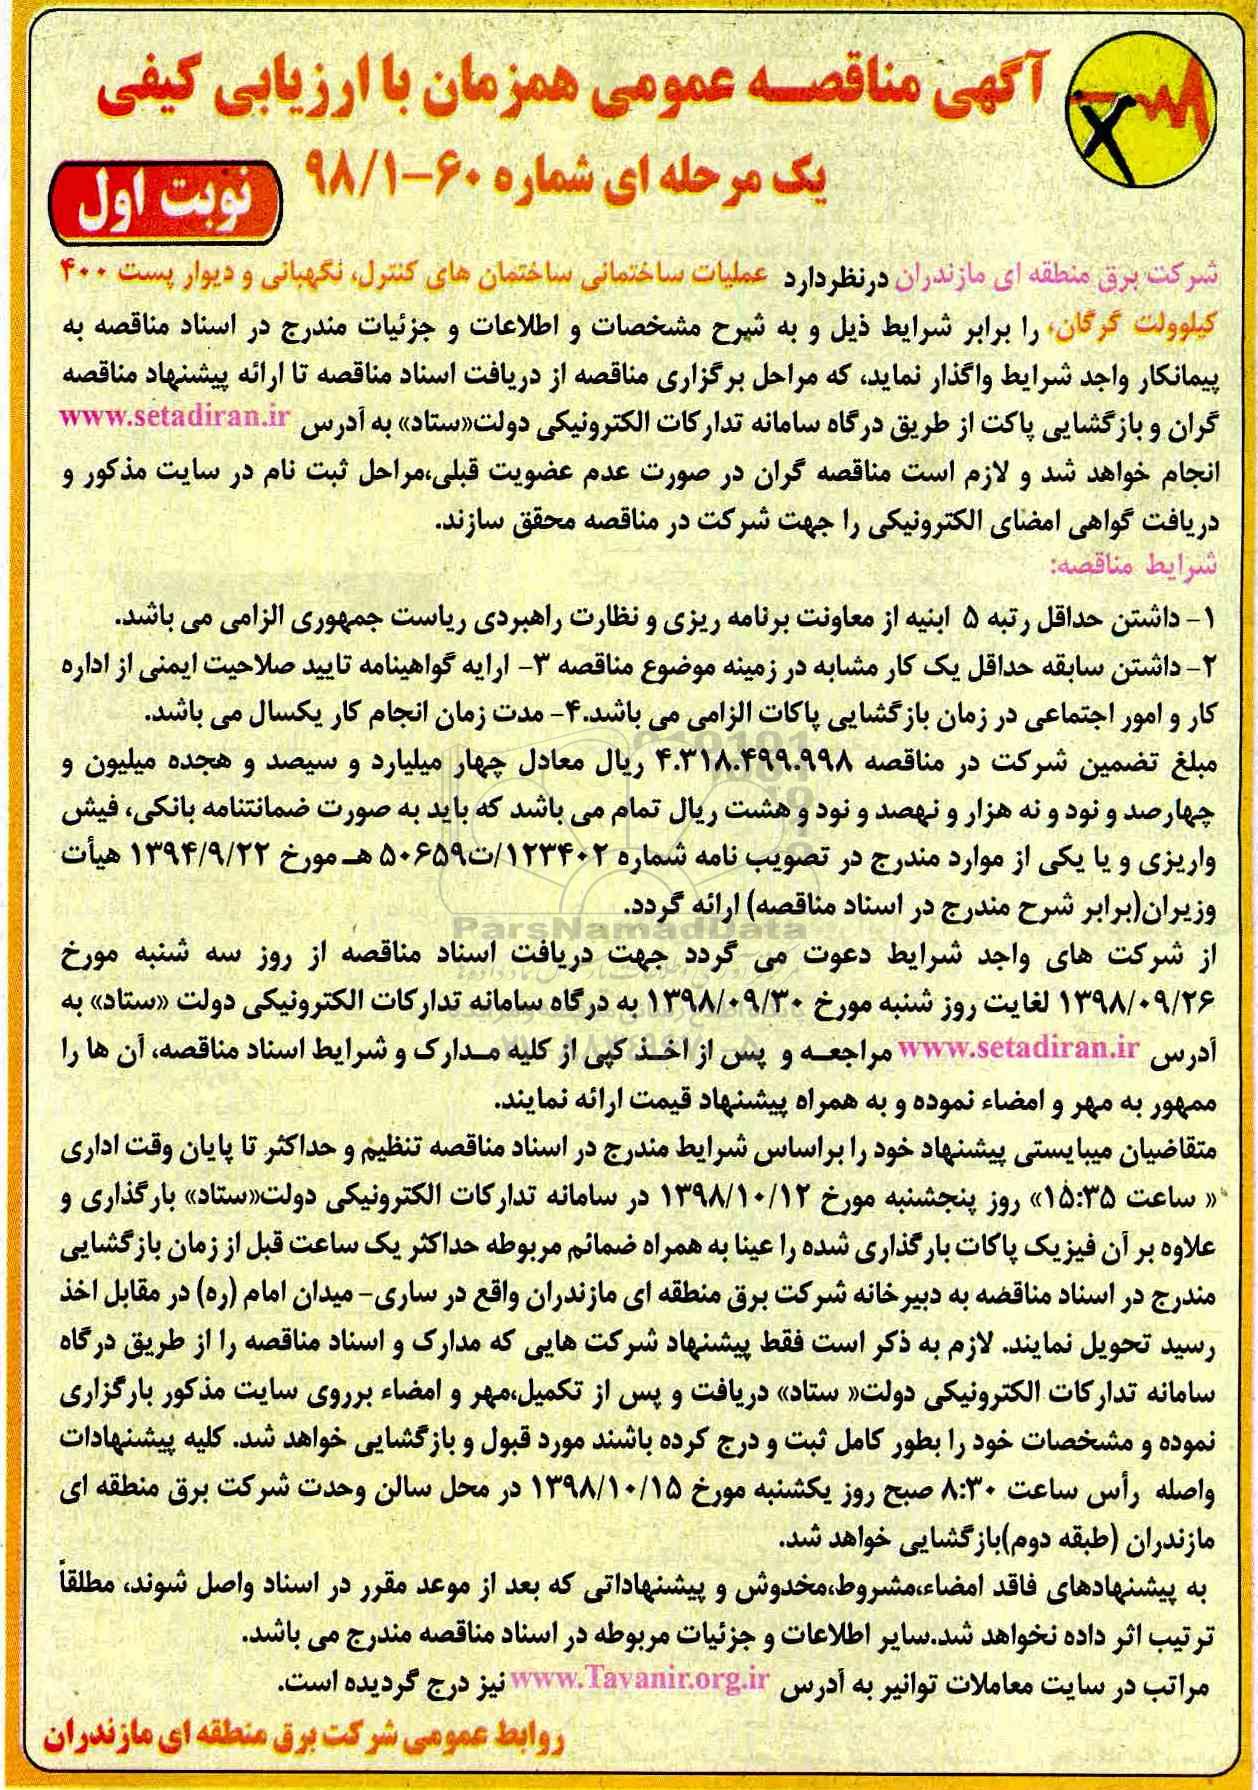 آگهی مناقصه عمومی همزمان با ارزیابی کیفی
یک مرحله ای شماره ۶۰-۹۸/۱
نوبت اول
شرکت برق منطقه ای مازندران درنظردارد عملیات ساختمانی ساختمان های کنترل، نگهبانی و دیوار پست ۴۰۰
کیلوولت گرگان، را برابر شرایط ذیل و به شرح مشخصات و اطلاعات و جزئیات مندرج در اسناد مناقصه به
پیمانکار واجد شرایط واگذار نماید، که مراحل برگزاری مناقصه از دریافت اسناد مناقصه تا ارائه پیشنهاد مناقصه
گران و بازگشایی پاکت از طریق درگاه سامانه تدارکات الکترونیکی دولت«ستاد» به آدرس www.setadiran.ir
انجام خواهد شد و لازم است مناقصه گران در صورت عدم عضویت قبلی،مراحل ثبت نام در سایت مذکور و
دریافت گواهی امضای الکترونیکی را جهت شرکت در مناقصه محقق سازند.
شرایط مناقصه:
۱- داشتن حداقل رتبه ۵ ابنیه از معاونت برنامه ریزی و نظارت راهبردی ریاست جمهوری الزامی می باشد.
۲- داشتن سابقه حداقل یک کار مشابه در زمینه موضوع مناقصه ۳- ارایه گواهینامه تایید صلاحیت ایمنی از اداره
کار و امور اجتماعی در زمان بازگشایی پاکات الزامی می باشد.۴- مدت زمان انجام کار یکسال می باشد.
مبلغ تضمین شرکت در مناقصه ۴.۳۱۸.۴۹۹.۹۹۸ ریال معادل چهار میلیارد و سیصد و هجده میلیون و
چهارصد و نود و نه هزار و نهصد و نود و هشت ریال تمام می باشد که باید به صورت ضمانتنامه بانکی، فیش
واریزی و یا یکی از موارد مندرج در تصویب نامه شماره ۱۲۳۴۰۲/ت۵۰۶۵۹ هـ مورخ ۱۳۹۴/۹/۲۲ هیأت
وزیران(برابر شرح مندرج در اسناد مناقصه) ارائه گردد.
ParsNamadData
از شرکت های واجد شرایط دعوت می گردد جهت دریافت اسناد مناقصه از روز سه شنبه مورخ
۱۳۹۸/۰۹/۲۶ لغایت روز شنبه مورخ ۱۳۹۸/۰۹/۳۰ به درگاه سامانه تدارکات الکترونیکی دولت «ستاد» به
آدرس www.setadiran.ir مراجعه و پس از اخذ کپی از کلیه مدارک و شرایط اسناد مناقصه، آن ها را
ممهور به مهر و امضاء نموده و به همراه پیشنهاد قیمت ارائه نمایند.
متقاضیان میبایستی پیشنهاد خود را براساس شرایط مندرج در اسناد مناقصه تنظیم و حداکثر تا پایان وقت اداری
« ساعت ۱۵:۳۵» روز پنجشنبه مورخ ۱۳۹۸/۱۰/۱۲ در سامانه تدارکات الکترونیکی دولت«ستاد» بارگذاری و
علاوه بر آن فیزیک پاکات بارگذاری شده را عینا به همراه ضمائم مربوطه حداکثر یک ساعت قبل از زمان بازگشایی
مندرج در اسناد مناقصه به دبیرخانه شرکت برق منطقه ای مازندران واقع در ساری- میدان امام (ره) در مقابل اخذ
رسید تحویل نمایند. لازم به ذکر است فقط پیشنهاد شرکت هایی که مدارک و اسناد مناقصه را از طریق درگاه
سامانه تدارکات الکترونیکی دولت« ستاد» دریافت و پس از تکمیل،مهر و امضاء برروی سایت مذکور بارگزاری
نموده و مشخصات خود را بطور کامل ثبت و درج کرده باشند مورد قبول و بازگشایی خواهد شد. کلیه پیشنهادات
واصله رأس ساعت ۸:۳۰ صبح روز یکشنبه مورخ ۱۳۹۸/۱۰/۱۵ در محل سالن وحدت شرکت برق منطقه ای
مازندران (طبقه دوم)بازگشایی خواهد شد.
به پیشنهادهای فاقد امضاء،مشروط،مخدوش و پیشنهاداتی که بعد از موعد مقرر در اسناد واصل شوند، مطلقاً
ترتیب اثر داده نخواهد شد.سایر اطلاعات و جزئیات مربوطه در اسناد مناقصه مندرج می باشد.
مراتب در سایت معاملات توانیر به آدرس www.Tavanir.org.ir نیز درج گردیده است.
روابط عمومی شرکت برق منطقه ای مازندران